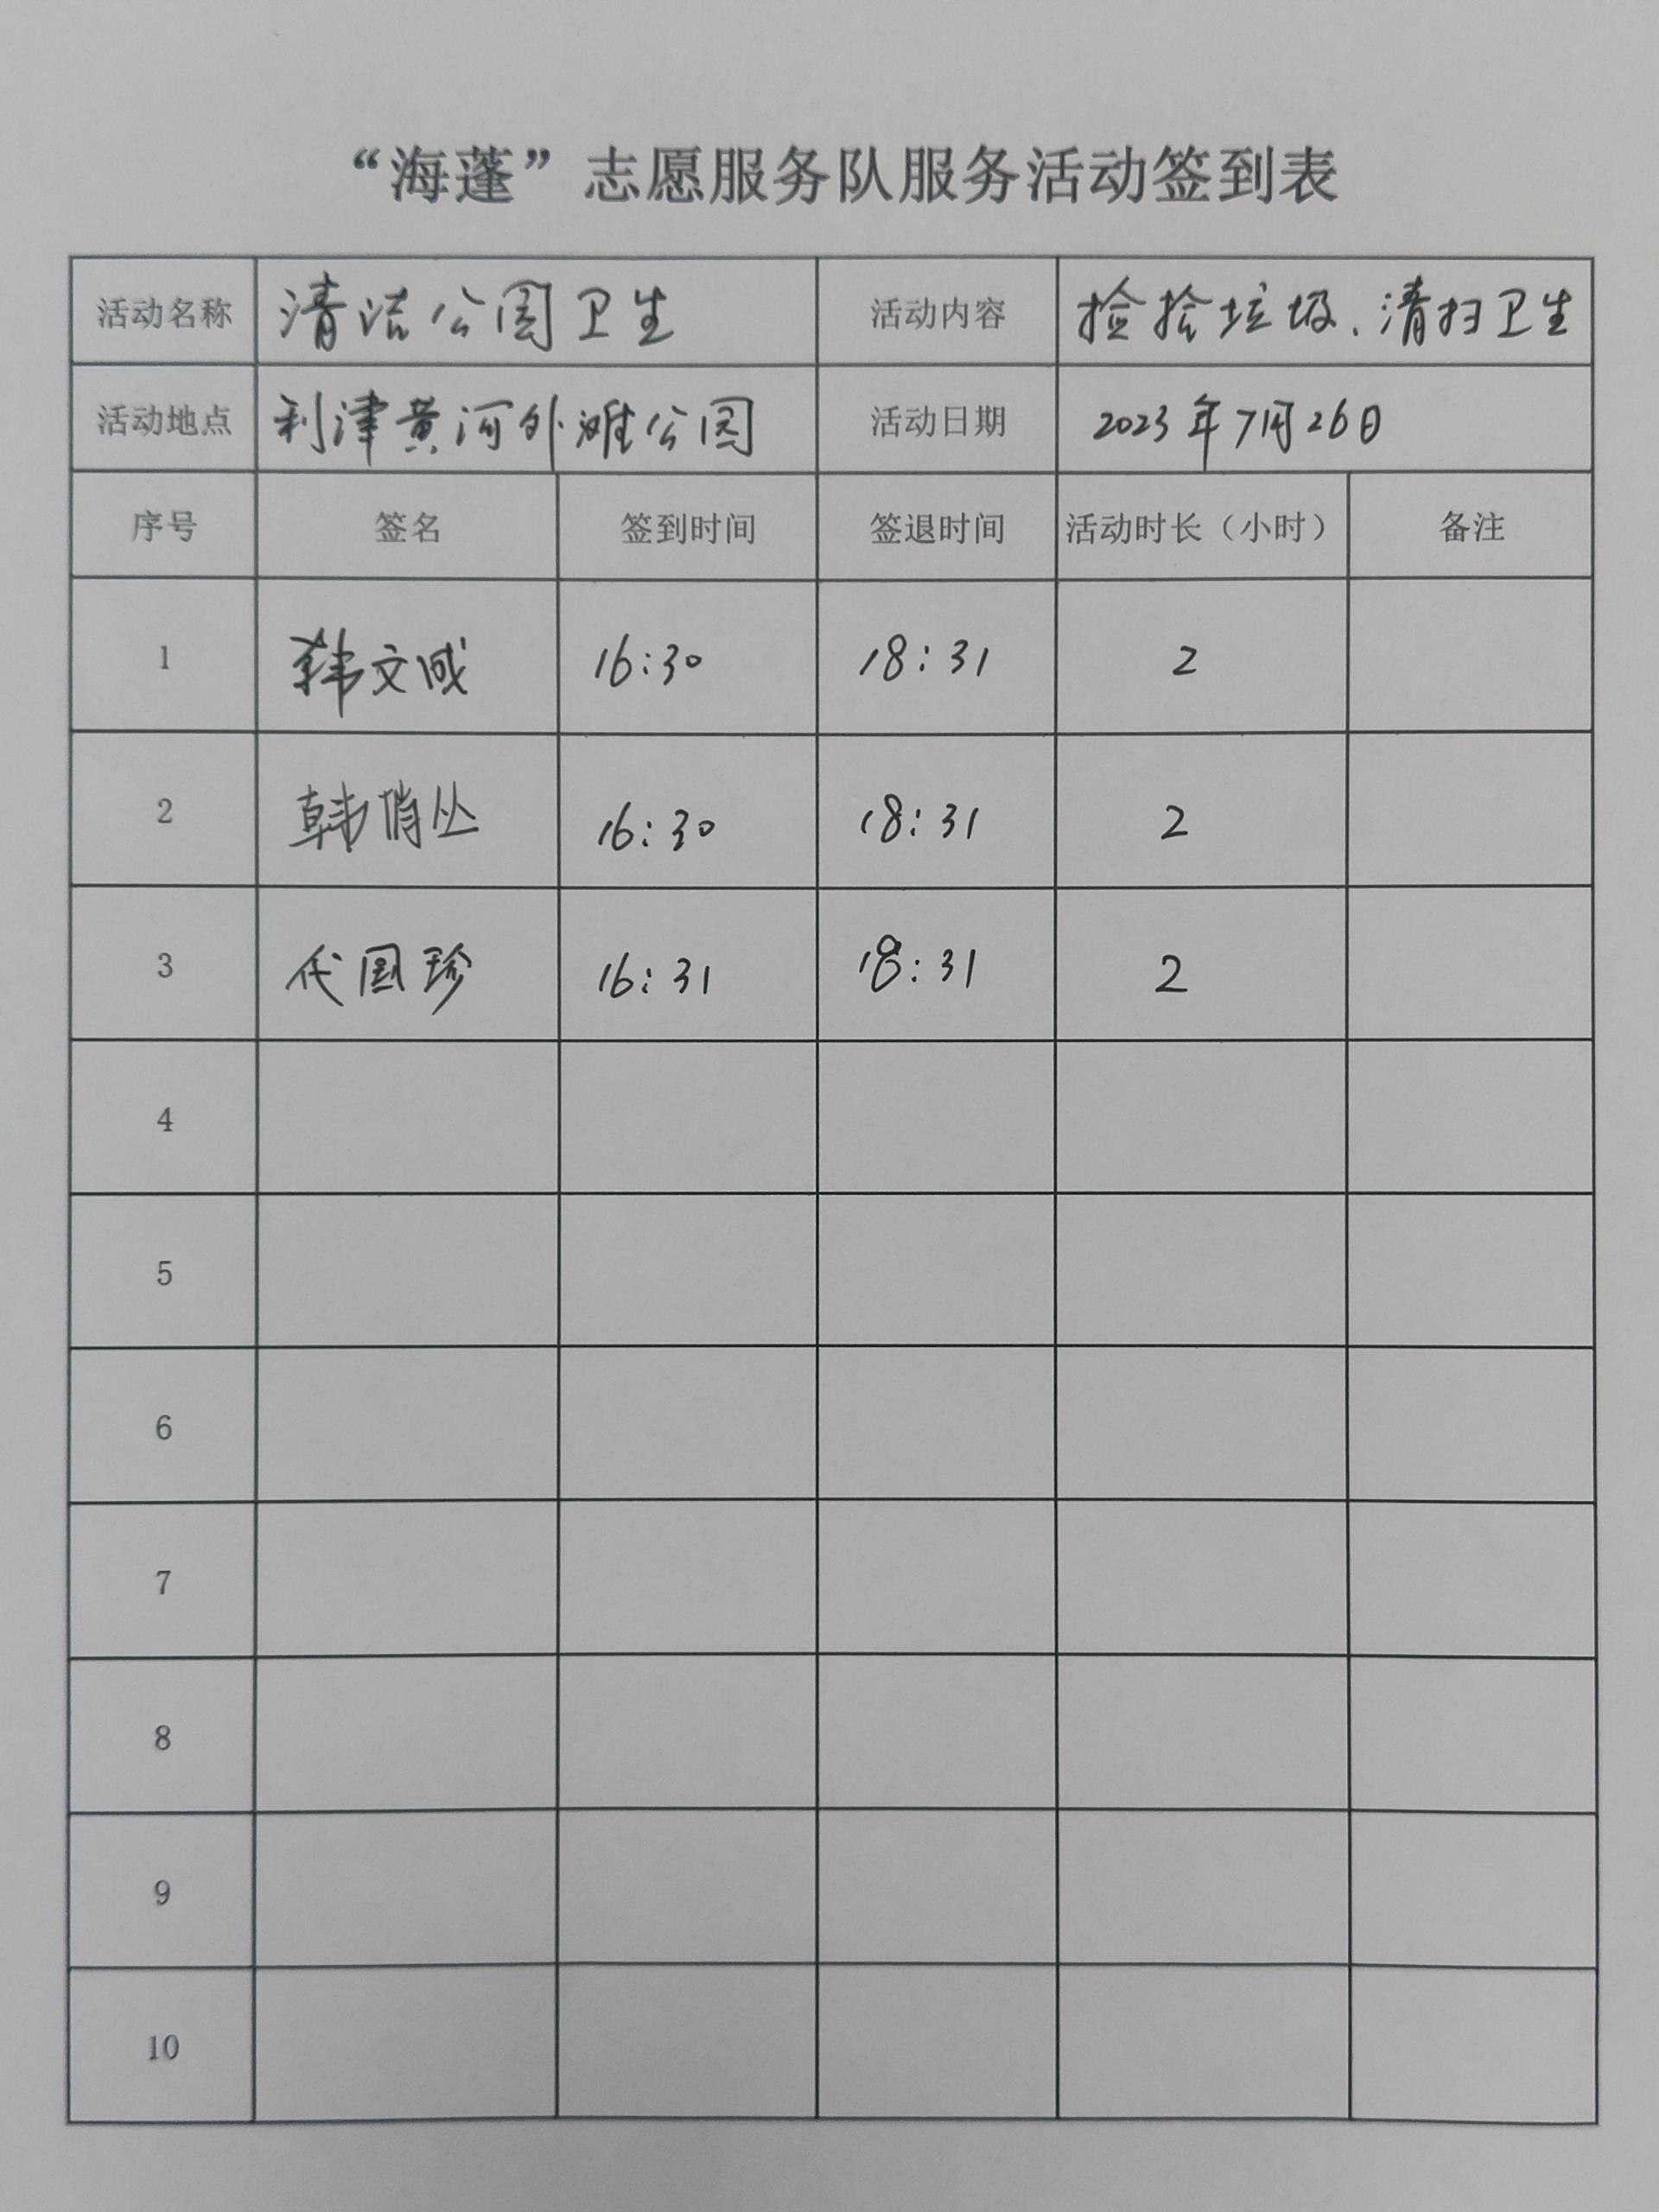 “海蓬”志愿服务队服务活动签到表
活动名称 清洁公园卫生 活动内容 捡拾垃圾、清扫卫生
活动地点 利津黄河外滩公园 活动日期 2023年7月26日
序号 签名 签到时间 签退时间 活动时长（小时） 备注
1 韩文成 16:30 18:31 2
2 韩悄丛 16:30 18:31 2
3 代国珍 16:31 18:31 2
4
5
6
7
8
9
10